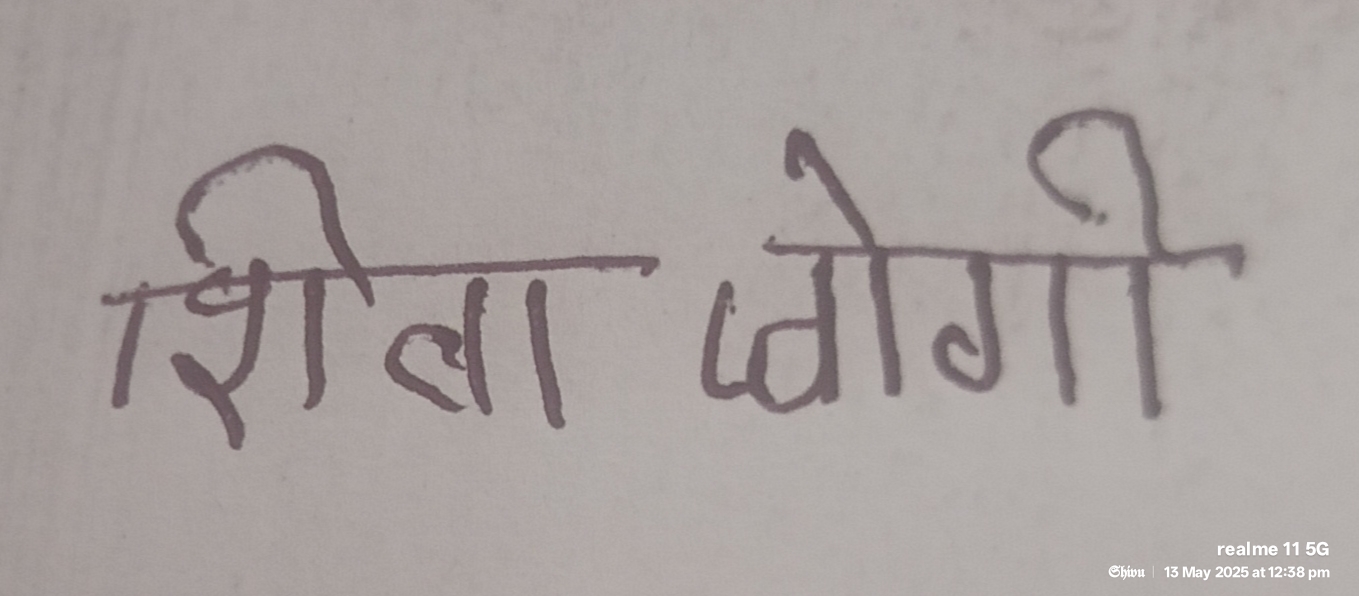 शिवा जोगी
realme 11 5G
Shivu | 13 May 2025 at 12:38 pm